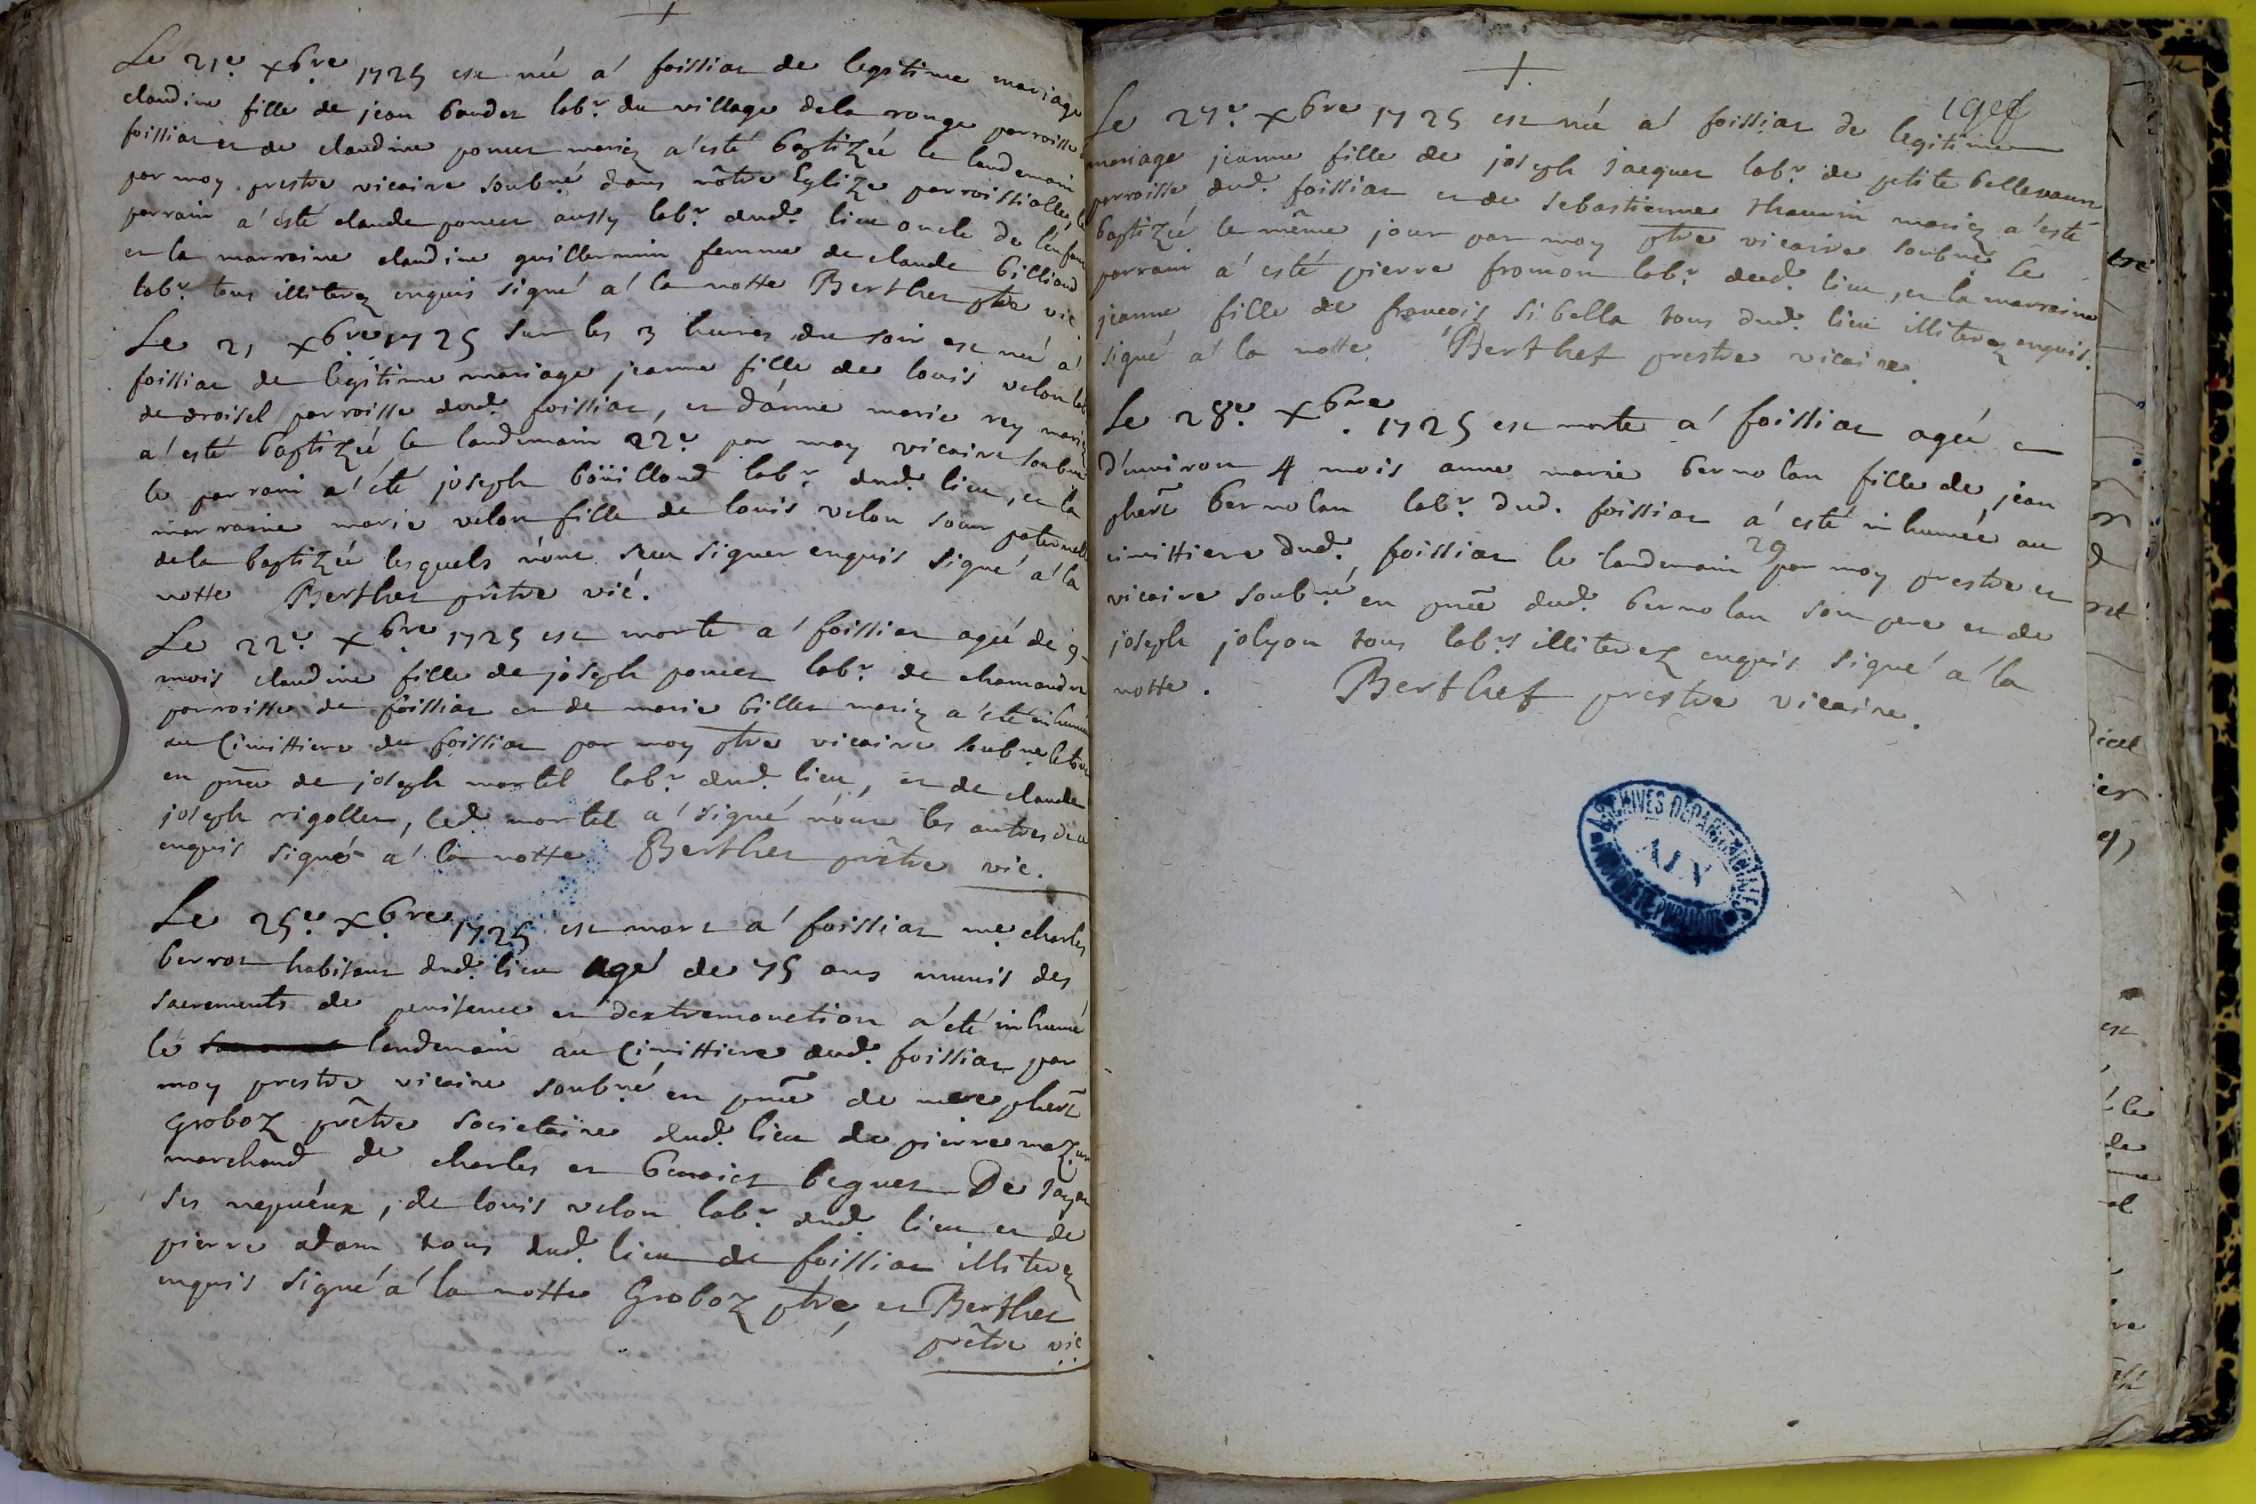 Le 21e. xbre 1725 est née a' foissiat de legitime mariage
claudine fille de jean baudet labr. du village dela rouge parroisse
foissiat et de claudine poncet mariez a' esté baptizée le landemain
par moy prestre vicaire soubné dans nôtre Eglize parroissialle, le
parrain a' esté claude poncet aussy labr. dud. lieu oncle de l'enfant
et la marraine claudine guillermin femme de claude billioud
labr. tous illiterez enquis signé a' la notte Berthet ptre vic
Le 21 xbre 1725 sur les 3 heures du soir est née a'
foissiat de legitime mariage jeanne fille de louis velon labr
de droisel parroisse dud. foissiat, et d'anne marie rey mariez
a' esté baptizée le landemain 22e par moy vicaire soubné
le parrain a' eté joseph böuilloud labr. dud. lieu, et la
marraine marie velon fille de louis velon soeur paternelle
dela baptizée lesquels n'ont sceu signer enquis signé a' la
notte Berthet prêtre vic.
Le 22e xbre 1725 est morte a' foissiat agée de 9
mois claudine fille de joseph poncet labr. de chamandre
parroisse de foissiat et de marie billet mariez a' eté inhumée
au Cimittiere de foissiat par moy ptre vicaire soubné
en pnce de joseph martel labr. dud. lieu, et de claude
joseph rigollet, led. martel a' signé n'ont les autres de ce
enquis signé a' la notte Berthet prêtre vic.
Le 25e. xbre 1725 est mort a' foissiat me charles
berrot habitant dud. lieu agé de 75 ans munis des
sacrements de penitence et d'extremonction a' eté inhumé
le landemain au Cimittiere dud. foissiat par
moy prestre vicaire soubné en pnce de mre phert
Groboz prêtre societaire dud. lieu de pierre
marchand de charles et benoist beguet De
ses nepueux, de louis velon labr. dud. lieu et de
pierre adam tous dud. lieu de foissiat illiterez
enquis signé a' la notte Groboz ptre, et Berthet
prêtre vic
Le 27e. xbre 1725 est née a' foissiat de legitime
mariage jeanne fille de joseph jacquet labr. de petite bellevaure
parroisse dud. foissiat et de sebastienne thauvin mariez a' esté
baptizée le même jour par moy ptre vicaire soubné Le
parrain a' esté pierre fromon labr. dud. lieu, et la marraine
jeanne fille de francois sibella tous dud. lieu illiterez enquis.
signé a' la notte. Berthet prestre vicaire.
Le 28e. xbre. 1725 est morte a' foissiat agée
d'environ 4 mois anne marie bernolan fille de jean
phert bernolan labr. dud. foissiat a' esté inhumée au
cimittiere dud. foissiat le landemain 29 par moy prestre et
vicaire soubné en pnce dud. bernolan son pere et de
joseph jolyon tous labrs illiterez enquis signé a' la
notte. Berthet prestre vicaire.
ARCHIVES DEPARTEMENTALES
AIN